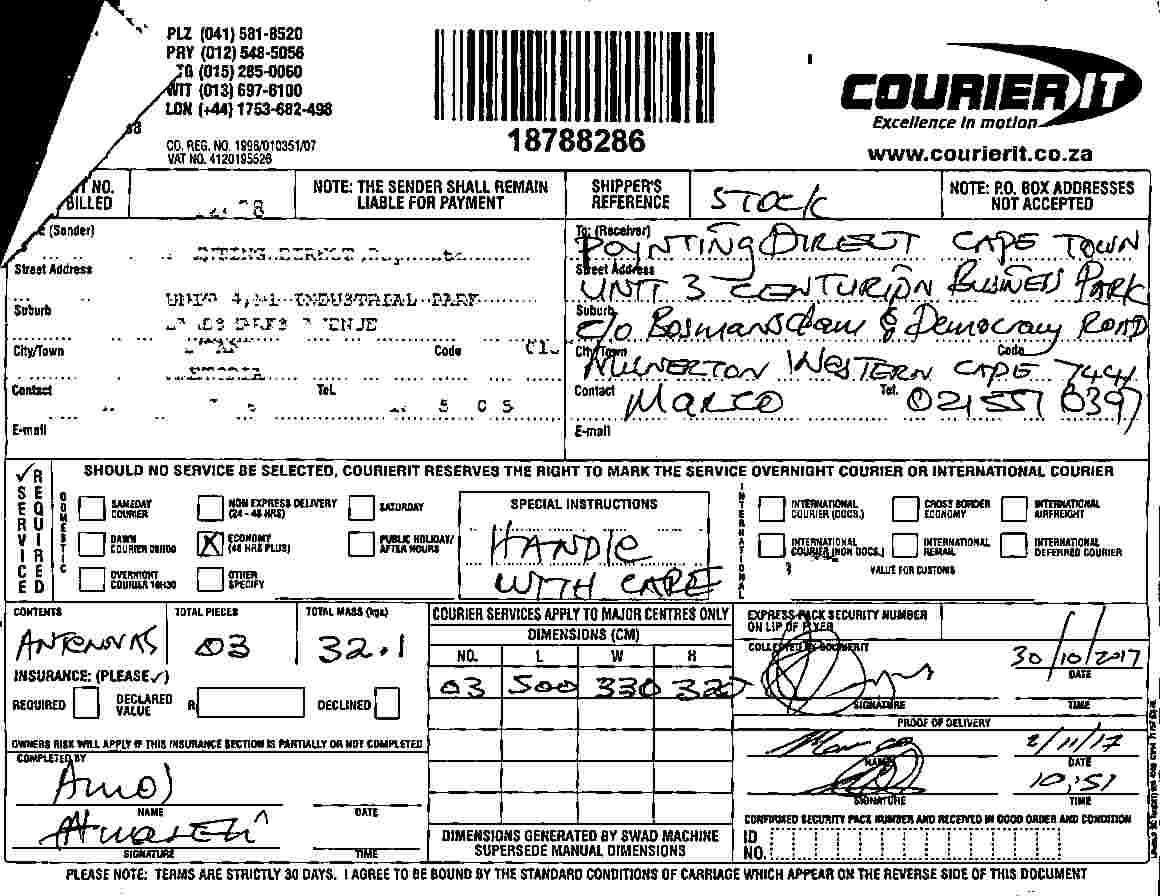 PLZ (041) 581-8520
PRY (012) 548-5056
(015) 285-0060
(013) 697-6100
LON (+44) 1753-682-498
CO. REG. NO. 1996/010351/07
VAT NO. 4120195526
18788286
COURIER IT
Excellence in motion
www.courierit.co.za
NO.
BILLED
NOTE: THE SENDER SHALL REMAIN
LIABLE FOR PAYMENT
SHIPPER'S
REFERENCE
STOCK
NOTE: P.O. BOX ADDRESSES
NOT ACCEPTED
(Sender)
Street Address
INDUSTRIAL PARK
Suburb
City/Town
Code
Contact
Tel.
E-mail
To: (Receiver)
POYNTING DIRECT CAPE TOWN
Street Address
UNIT 3 CENTURION BUSINESS PARK
Suburb
c/o Bosmansdam & Democracy ROAD
City/Town
Code
MILNERTON WESTERN CAPE 7441
Contact
MARCO
Tel.
021 551 0397
E-mail
✓ SERVICE REQUIRED
SHOULD NO SERVICE BE SELECTED, COURIERIT RESERVES THE RIGHT TO MARK THE SERVICE OVERNIGHT COURIER OR INTERNATIONAL COURIER
DOMESTIC
SAMEDAY
COURIER
NON EXPRESS DELIVERY
(24 - 48 HRS)
SATURDAY
DAWN
COURIER 08H00
X
ECONOMY
(48 HRS PLUS)
PUBLIC HOLIDAY/
AFTER HOURS
OVERNIGHT
COURIER 10H30
OTHER
SPECIFY
SPECIAL INSTRUCTIONS
HANDLE
WITH CARE
INTERNATIONAL
INTERNATIONAL
COURIER (DOCS.)
CROSS BORDER
ECONOMY
INTERNATIONAL
AIRFREIGHT
INTERNATIONAL
COURIER (NON DOCS.)
INTERNATIONAL
REMAIL
INTERNATIONAL
DEFERRED COURIER
VALUE FOR CUSTOMS
CONTENTS
ANTENNAS
TOTAL PIECES
03
TOTAL MASS (kgs)
32.1
INSURANCE: (PLEASE ✓)
REQUIRED
DECLARED
VALUE
R
DECLINED
OWNERS RISK WILL APPLY IF THIS INSURANCE SECTION IS PARTIALLY OR NOT COMPLETED
COMPLETED BY
NAME
DATE
SIGNATURE
TIME
COURIER SERVICES APPLY TO MAJOR CENTRES ONLY
DIMENSIONS (CM)
NO. L W H
03 500 330 320
DIMENSIONS GENERATED BY SWAD MACHINE
SUPERSEDE MANUAL DIMENSIONS
EXPRESS PACK SECURITY NUMBER
ON LIP OF FLYER
COLLECTED BY COURIERIT
30/10/2017
DATE
SIGNATURE
TIME
PROOF OF DELIVERY
Marco
2/11/17
NAME
DATE
10:51
SIGNATURE
TIME
CONFIRMED SECURITY PACK NUMBER AND RECEIVED IN GOOD ORDER AND CONDITION
ID
NO.
PLEASE NOTE: TERMS ARE STRICTLY 30 DAYS. I AGREE TO BE BOUND BY THE STANDARD CONDITIONS OF CARRIAGE WHICH APPEAR ON THE REVERSE SIDE OF THIS DOCUMENT